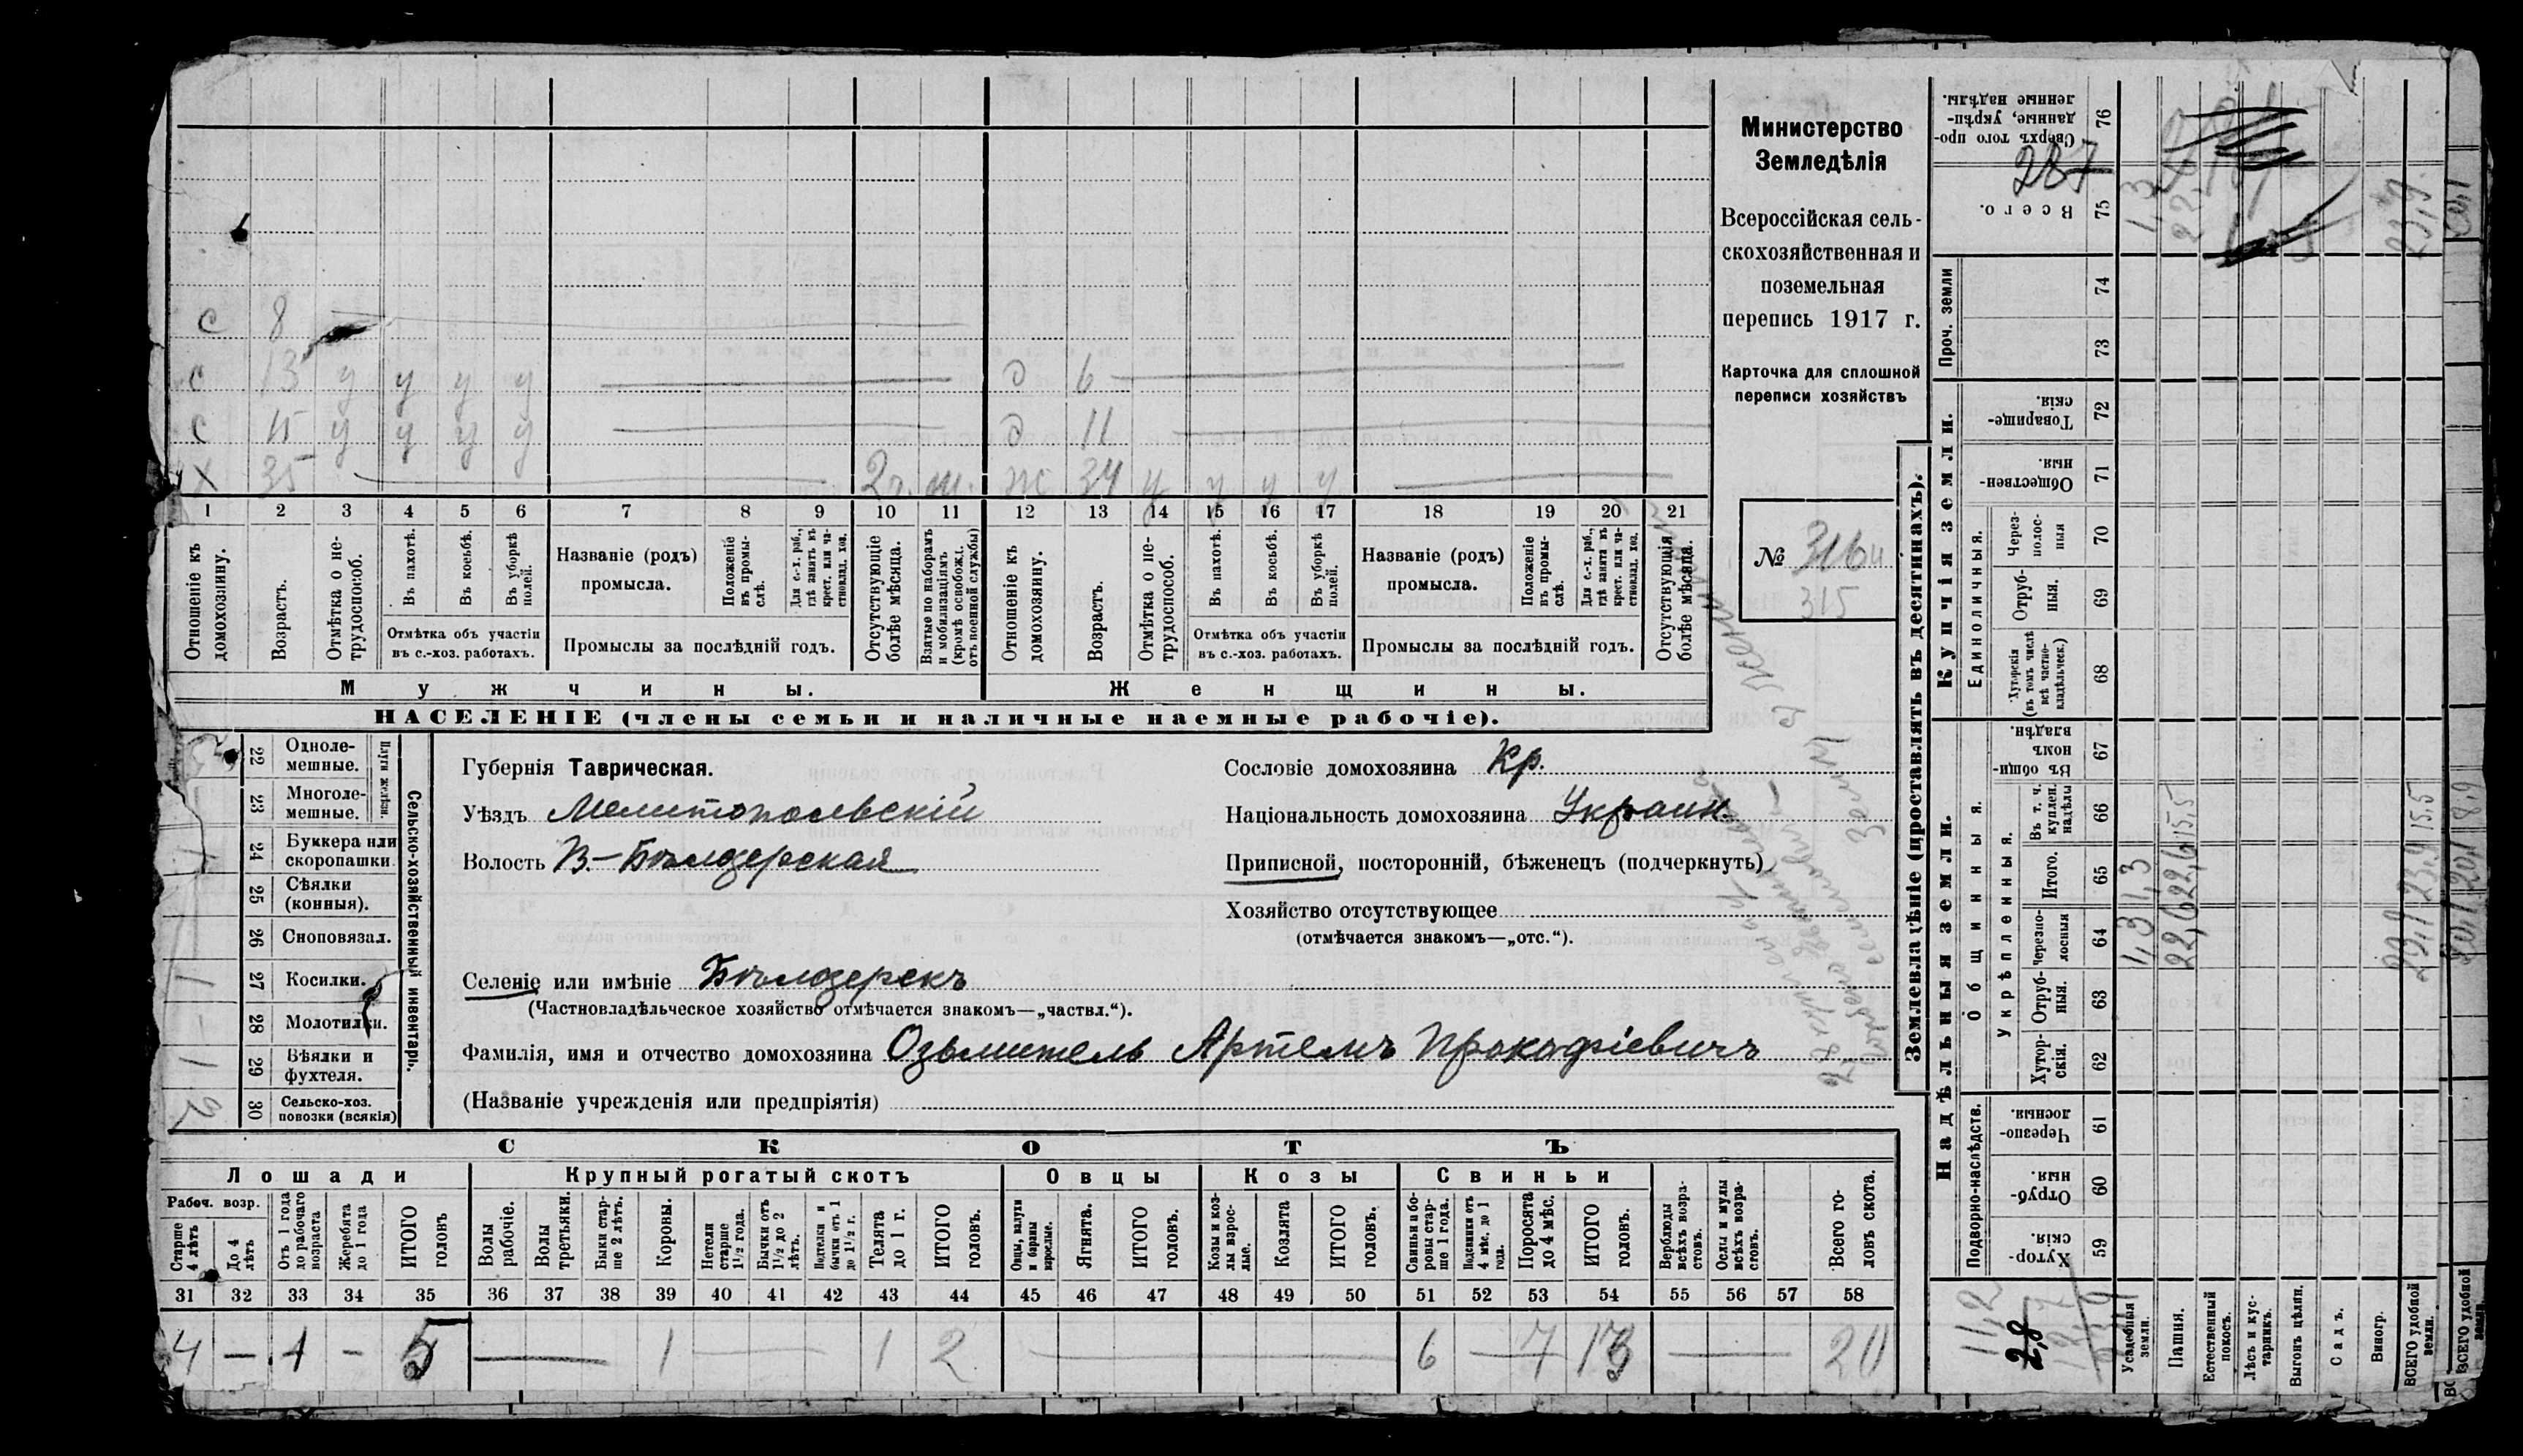 Министерство
Земледѣлія
Всероссійская сель-
скохозяйственная и
поземельная
перепись 1917 г.
Карточка для сплошной
переписи хозяйствъ
№ 316
315
с 8
с 13 у у у у
д 6
с 15 у у у у
д 11
х 35 2 г. м.
ж 34 у у у у
1 2 3 4 5 6 7 8 9 10 11 12 13 14 15 16 17 18 19 20 21
Отношеніе къ домохозяину.
Возрастъ.
Отмѣтка о не-трудоспособ.
Въ пахотѣ.
Въ косьбѣ.
Въ уборкѣ полей.
Отмѣтка объ участіи
въ с.-хоз. работахъ.
Названіе (родъ)
промысла.
Положеніе въ промы-слѣ.
Для с.-х. раб., гдѣ занятъ въ крест. или ча-стновлад. хоз.
Промыслы за послѣдній годъ.
Отсутствующіе болѣе мѣсяца.
Взятые по наборамъ и мобилизаціямъ (кромѣ освобожд. отъ военной службы)
Отношеніе къ домохозяину.
Возрастъ.
Отмѣтка о не-трудоспособ.
Въ пахотѣ.
Въ косьбѣ.
Въ уборкѣ полей.
Отмѣтка объ участіи
въ с.-хоз. работахъ.
Названіе (родъ)
промысла.
Положеніе въ промы-слѣ.
Для с.-х. раб., гдѣ занята въ крест. или ча-стновлад. хоз.
Промыслы за послѣдній годъ.
Отсутствующія болѣе мѣсяца.
Мужчины.
Женщины.
НАСЕЛЕНІЕ (члены семьи и наличные наемные рабочіе).
Сельско-хозяйственный инвентарь.
Плуги желѣзн.
22 Одноле-мешные.
23 Многоле-мешные.
24 Буккера или скоропашки
25 Сѣялки (конныя).
26 Сноповязал.
27 Косилки. 1
28 Молотилки.
29 Вѣялки и фухтеля. 1
30 Сельско-хоз. повозки (всякія) 2
Губернія Таврическая.
Уѣздъ Мелитопольскій
Волость В.-Бѣлозерская
Сословіе домохозяина Кр.
Національность домохозяина Украин.
Приписной, посторонній, бѣженецъ (подчеркнуть)
Хозяйство отсутствующее
(отмѣчается знакомъ—„отс.“).
Селеніе или имѣніе Бѣлозерскъ
(Частновладѣльческое хозяйство отмѣчается знакомъ—„частвл.“).
Фамилія, имя и отчество домохозяина Озьмитель Артемъ Прокофіевичъ
(Названіе учрежденія или предпріятія)
СКОТЪ
Лошади
Крупный рогатый скотъ
Овцы
Козы
Свиньи
Рабоч. возр.
Старше 4 лѣтъ
До 4 лѣтъ
Отъ 1 года до рабочаго возраста
Жеребята до 1 года
ИТОГО головъ
Волы рабочіе.
Волы третьяки.
Быки стар-ше 2 лѣтъ.
Коровы.
Нетели старше 1½ года.
Бычки отъ 1½ до 2 лѣтъ.
Подтелки и бычки отъ 1 до 1½ г.
Телята до 1 г.
ИТОГО головъ.
Овцы, валухи и бараны взрослые.
Ягнята.
ИТОГО головъ.
Козы и коз-лы взрос-лые.
Козлята
ИТОГО головъ.
Свиньи и бо-ровы стар-ше 1 года.
Подсвинки отъ 4 мѣс. до 1 года.
Поросята до 4 мѣс.
ИТОГО головъ.
Верблюды всѣхъ возра-стовъ.
Ослы и мулы всѣхъ возра-стовъ.
Всего го-ловъ скота.
31 32 33 34 35 36 37 38 39 40 41 42 43 44 45 46 47 48 49 50 51 52 53 54 55 56 57 58
4 — 1 — 5 — 1 — 1 2 — 6 — 7 13 — 20
Землевладѣніе (проставлять въ десятинахъ).
Купчія земли.
Надѣльныя земли.
Проч. земли
Единоличныя.
Общинныя.
Укрѣпленныя.
Подворно-наслѣдств.
Сверхъ того про-данные, укрѣп-ленные надѣлы. 76
287
Всего. 75
74
73
Товарище-скія. 72
Обществен-ныя. 71
Через-полос-ныя 70
Отруб-ныя. 69
Хуторскія (въ томъ числѣ всѣ частно-владѣльческ.) 68
Въ общи-номъ владѣн. 67
Въ т. ч. куплен. надѣлы 66
Итого. 65
Черезпо-лосныя 64
Отруб-ныя. 63
Хутор-скія. 62
Черезпо-лосныя. 61
Отруб-ныя. 60
Хутор-скія. 59
11,2
2,8
Усадебная земли. 1,3 1,3 1,3
Пашня. 22,6 22,6 15,5
Естественный покосъ.
Лѣсъ и кус-тарникъ.
Выгонъ цѣлин.
Садъ.
Виногр.
ВСЕГО удобной земли. 23,9 23,9 15,5 23,9
ВСЕГО удобной земли. 20,1 20,1 8,9 20,1